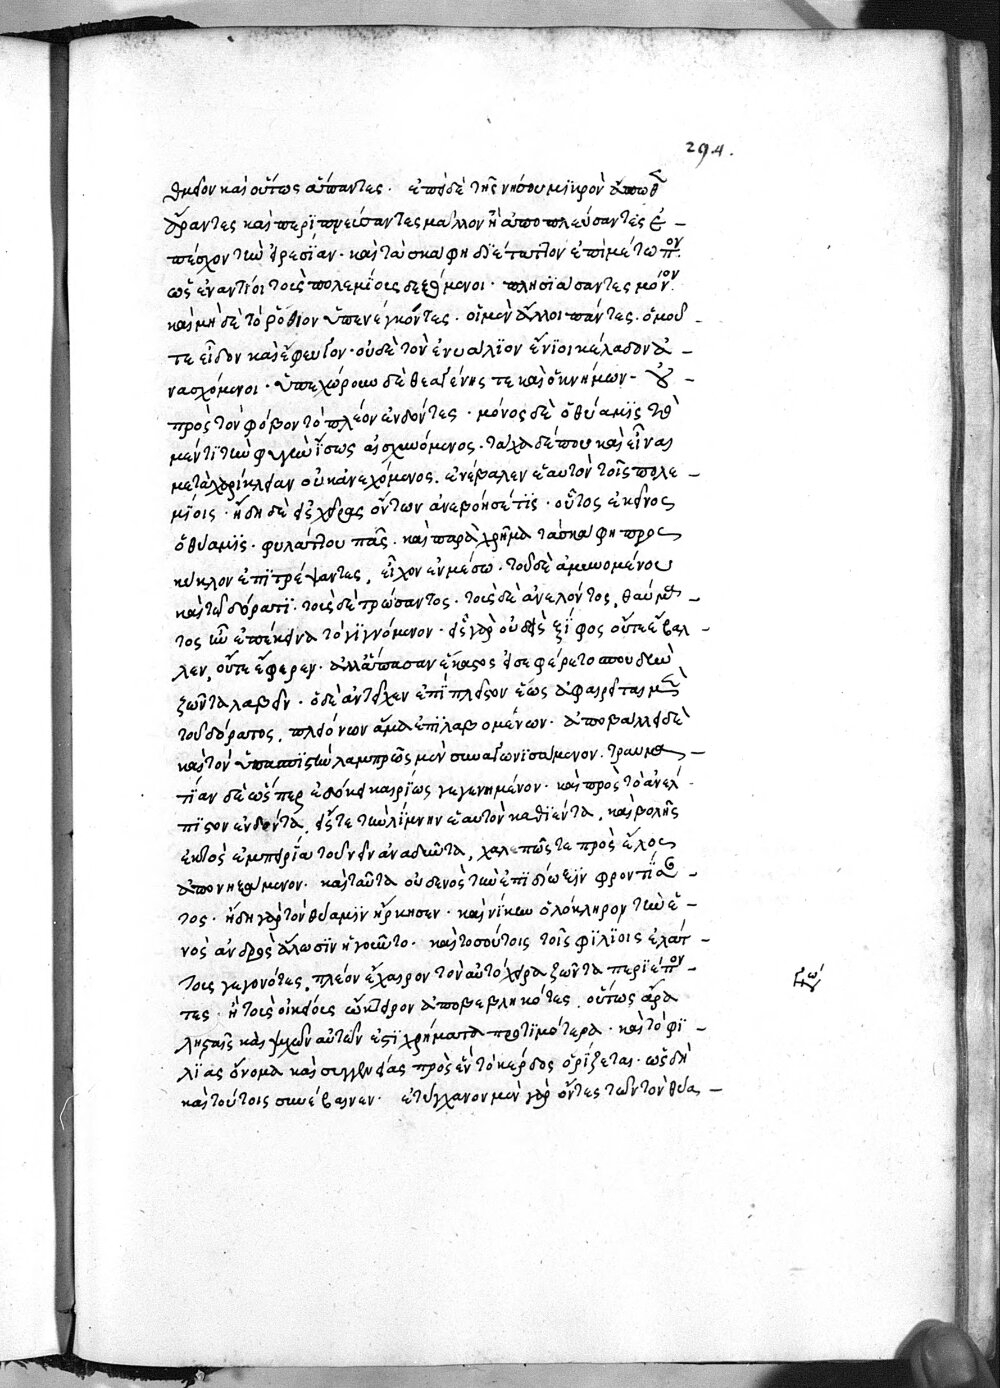 294.
θμῖον καὶ οὕτως ἅπαντες. ἐπεὶ δὲ τῆς νήσου μϊκρὸν ἄπωθεν
δράντες καὶ περϊπνεύσαντες μᾶλλον ἢ ἀποπλεύσαντες ἐ-
πέσχον τὴν εἰρεσίαν. καὶ τὰ σκάφη διέταττον ἐπὶ μέτωπον
ὡς ἐναντίοι τοῖς πολεμίοις δεξόμενοι. πλησϊάσαντες μόνον
καὶ μὴ δὲ τὸ ῥόθιον ὑπενέγκόντες. οἱ μὲν ἄλλοι πάντες. ὁμοῦ-
τε εἶδον καὶ ἔφευγον. οὐδὲ τὸν ἐνυάλϊον ἔνϊοι κέλαδον ἀ-
νασχόμενοι. ὑπεχώρουν δὲ θεαγένης τε καὶ ὁ κνήμων- οὐ-
πρὸς τὸν φόβον τὸ πλέον ἐνδόντες. μόνος δὲ ὁ θύαμϊς τὸ
μέν τϊ τὴν φυγὴν ἴσως αἰσχυνόμενος. τάχα δέ που καὶ εἶναι
μετὰ χαρίκλειαν οὐκ ἀνεχόμενος. ἐνέβαλεν ἑαυτὸν τοῖς πολε-
μίοις. ἤδη δὲ εἰς χεῖρας ὄντων ἀνεβόησέ τϊς. οὗτος ἐκεῖνος
ὁ θύαμϊς. φυλάττου πᾶς. καὶ παρὰ χρῆμα τὰ σκάφη πρὸς
κύκλον ἐπϊτρέψαντες, εἶχον ἐν μέσῳ. τοῦ δὲ ἀμυνομένου
καὶ τῷ δόρατϊ. τοὺς δὲ τρώσαντος. τοὺς δὲ ἀνελόντος, θαύμα-
τος ἦν ἐπέκεινα τὸ γϊγνόμενον. εἷς γὰρ οὐδεὶς ξίφος οὔτε ἔβαλ-
λεν, οὔτε ἔφερεν. ἀλλ' ἅπασαν ἕκαστος εἰσεφέρετο σπουδὴν
ζῶντα λαβεῖν. ὁ δὲ ἀντεῖχεν ἐπϊπλεῖστον ἕως ἀφαιρεῖται μὲν
τοῦ δόρατος, πλειόνων ἅμα ἐπϊλαβομένων. ἀποβάλλει δὲ
καὶ τὸν ὑπασπϊστὴν λαμπρῶς μὲν συναγωνϊσάμενον. τραυμα-
τίαν δὲ ὥσπερ ἐδόκει καιρίως γεγενημένον. καὶ πρὸς τὸ ἀνέλ-
πϊστον ἐνδόντα, εἴς τε τὴν λίμνην ἑαυτὸν καθϊέντα, καὶ βολῆς
ἐκτὸς ἐμπειρίᾳ τοῦ νεῖν ἀναδύντα, χαλεπῶς τε πρὸς ἕλος
ἀπονηξάμενον. καὶ ταῦτα οὐδενὸς τὴν ἐπϊδίωξϊν φροντίσαν-
τος. ἤδη γὰρ τὸν θύαμϊν ᾕρηκεσεν. καὶ νίκην ὁλόκληρον τὴν ἑ-
νὸς ἀνδρὸς ἅλωσϊν ἡγοῦντο. καὶ τοσούτοις τοῖς φϊλϊοις ἐλάτ-
τους γεγονότες, πλέον ἔχαιρον τὸν αὐτόχειρα ζῶντα περϊέπον-
τες. ἢ τοὺς οἰκείους ᾤκτειρον ἀποβεβληκότες. οὕτως ἄρα
λῃσταῖς καὶ ψυχῶν αὐτῶν ἐστϊ χρήματα προτϊμότερα. καὶ τὸ φϊ-
λϊας ὄνομα καὶ συγγενείας πρὸς ἓν τὸ κέρδος ὁρίζεται. ὡς δὴ
καὶ τούτοις συνέβαινεν. ἐτύγχανον μὲν γὰρ ὄντες τῶν τὸν θύα-